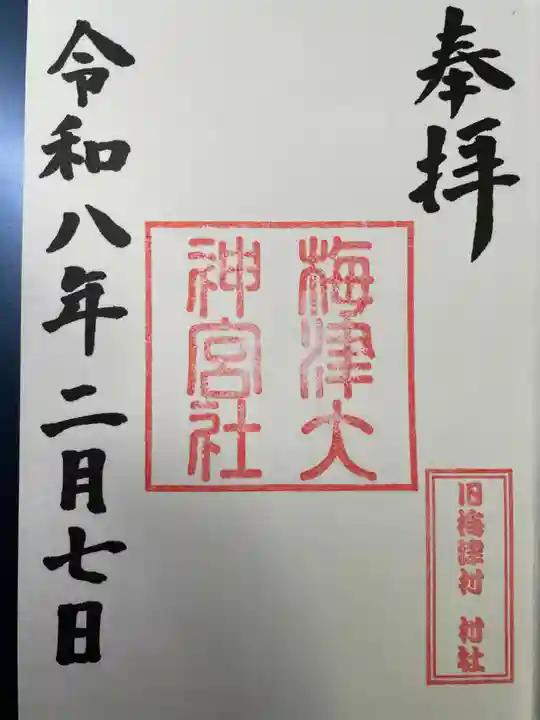 奉拝
梅津大
神宮社
旧梅津村 村社
令和八年二月七日